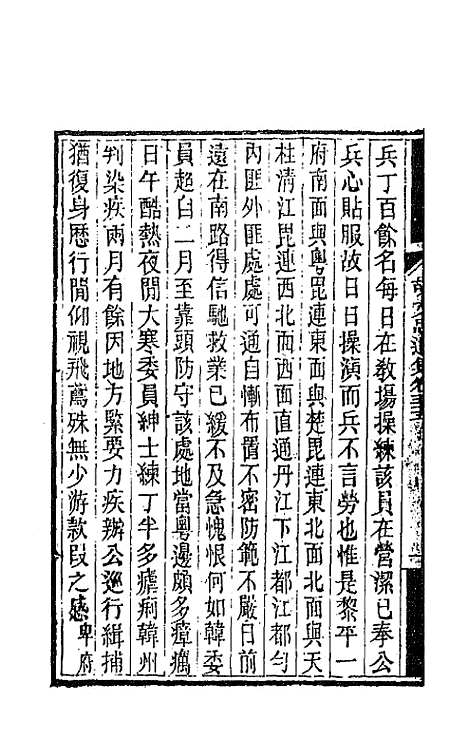 兵丁百餘名每日在教場操練該員在營潔已奉公
兵心貼服故日日操演而兵不言勞也惟是黎平一
府南面與粵毘連東面與楚毘連東北面與天
柱清江毘連西北面西面直通丹江下江都江都勻
內匪外匪處處可通自慚布置不密防範不嚴日前
遠在南路得信馳救業已緩不及急愧恨何如韓委
員超自二月至靠頭防守該處地當粵邊頗多瘴癘
日午酷熱夜間大寒委員紳士練丁半多瘧痢韓州
判染疾兩月有餘因地方緊要力疾辦公巡行緝捕
猶復身歷行間仰視飛鳶殊無少游款段之感卑府